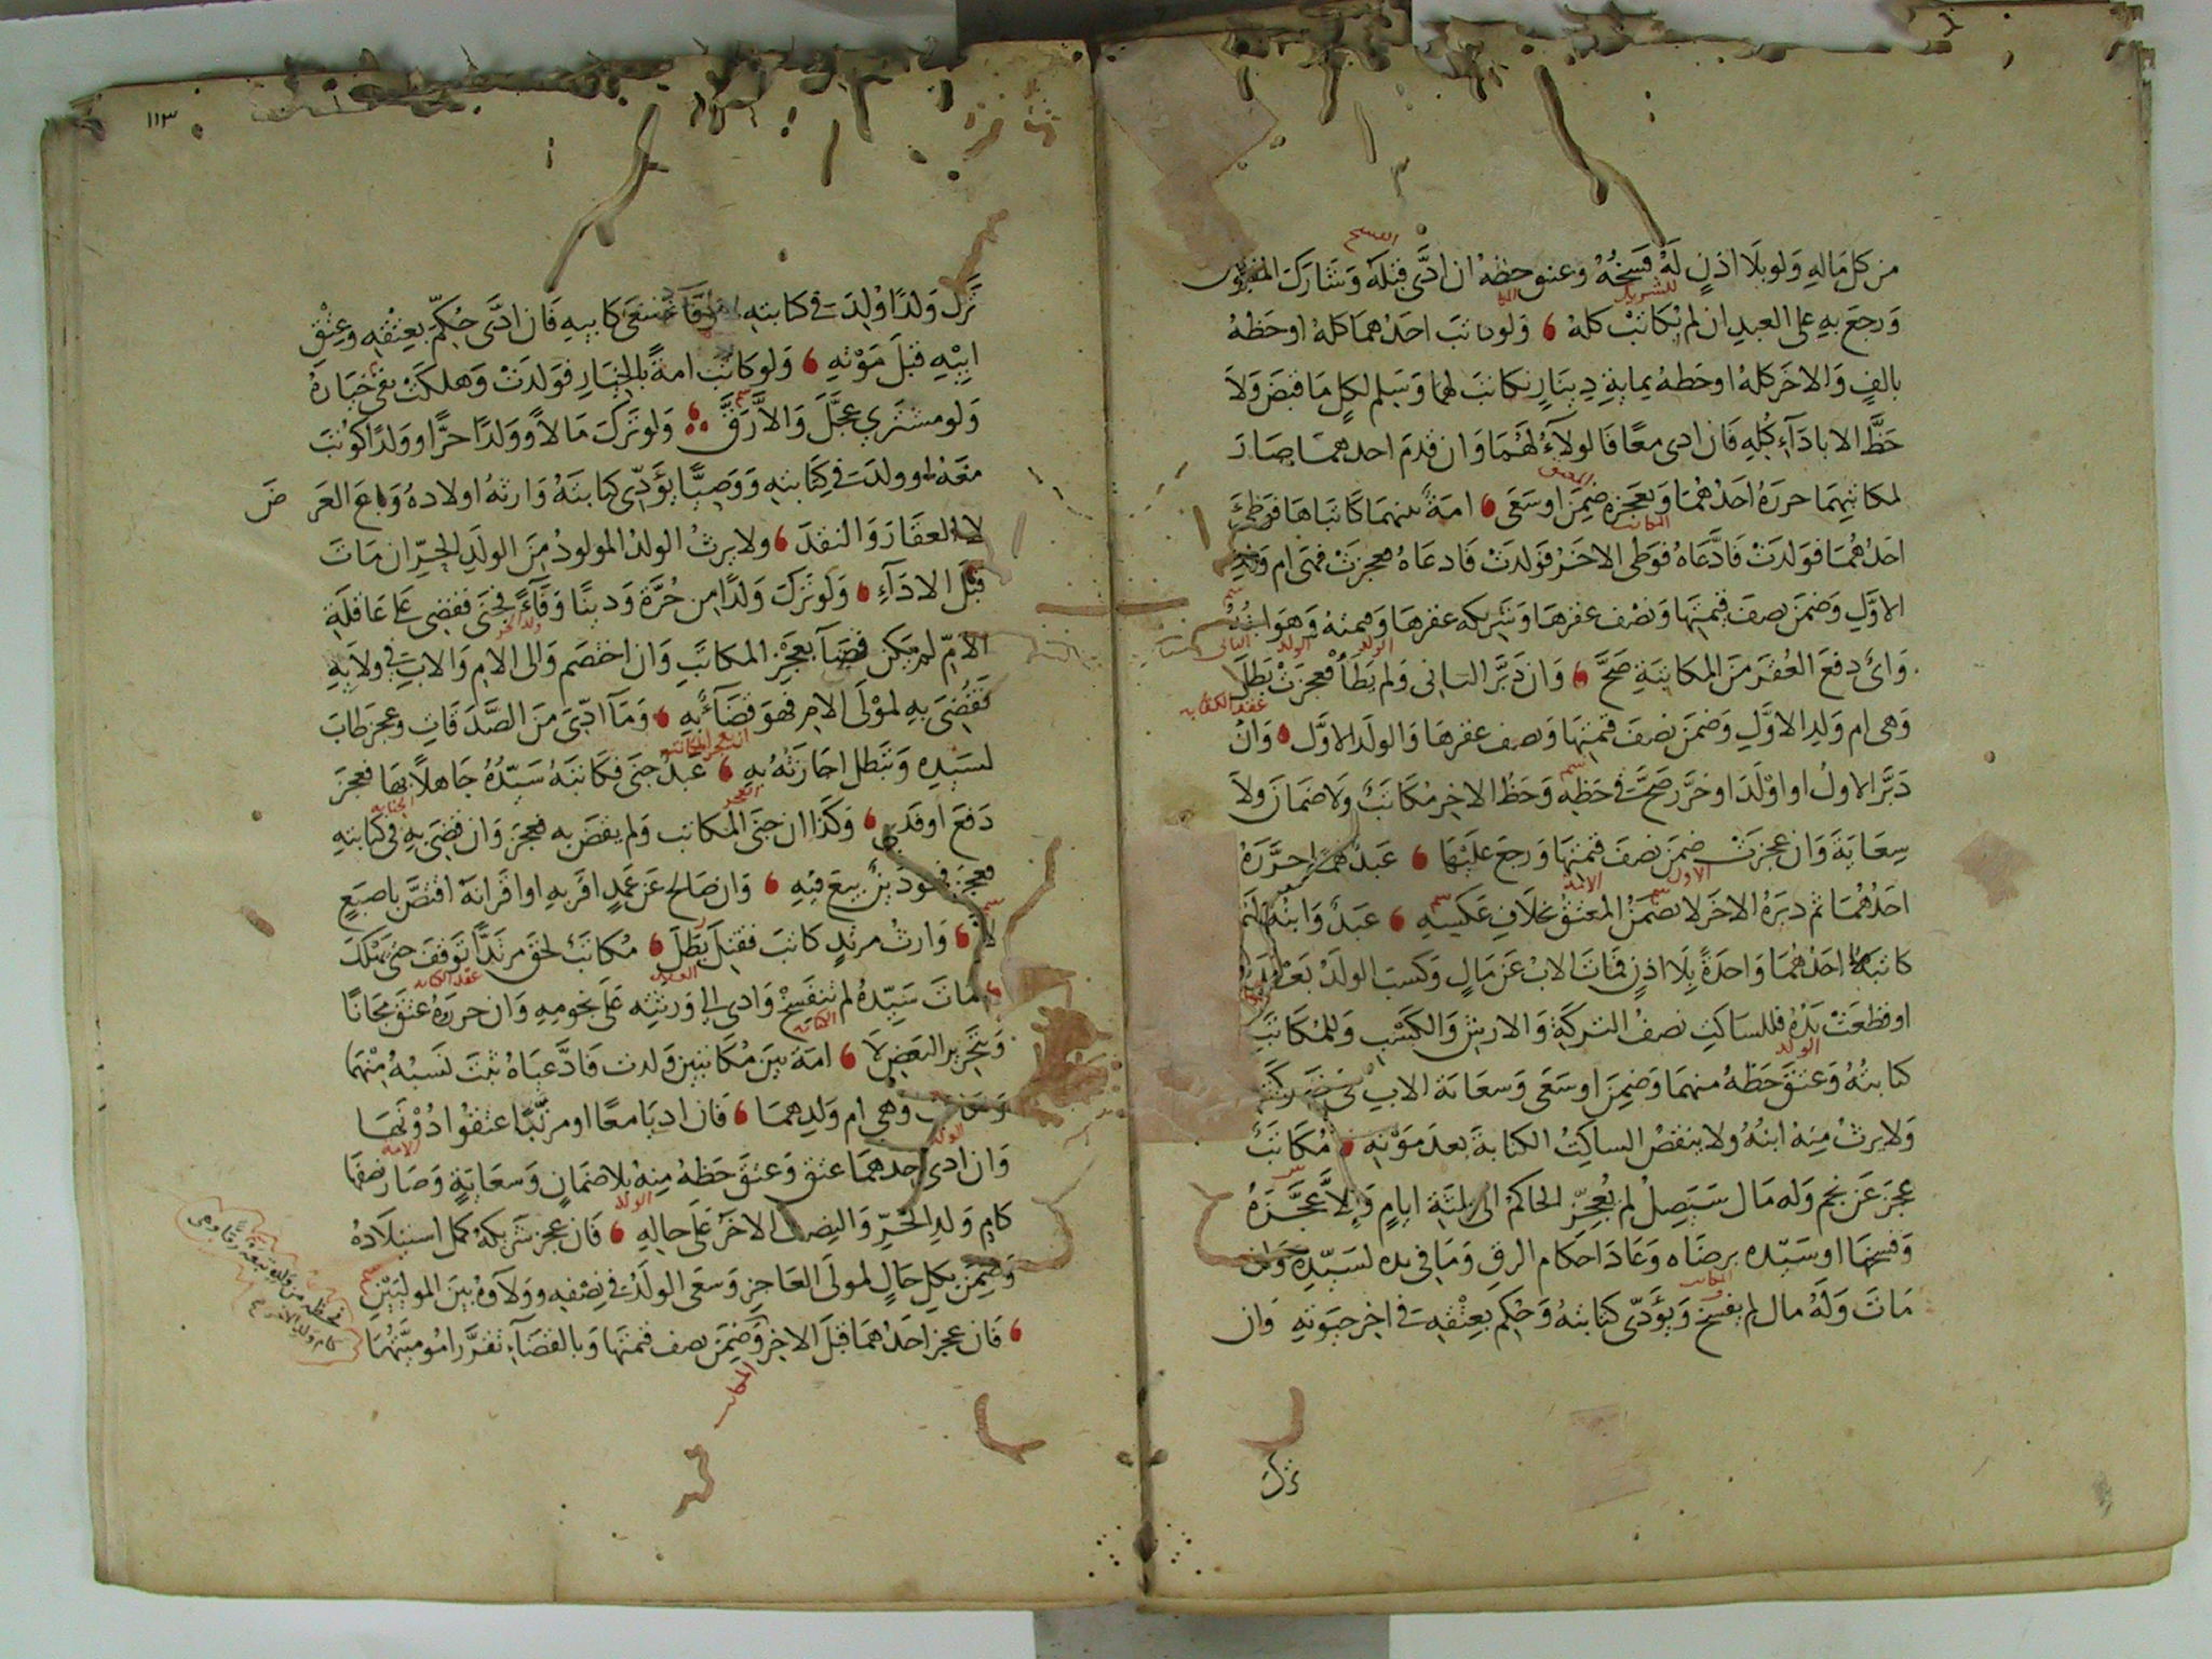 من كل ماله ولو بلا اذن له فسخه وعتق حظه ان ادى قبله وشارك المقبوض
ورجع به على العبد ان لم يكاتب كله ولو كاتب احدهما كله او حظه
بالف والاخر كله او حظه بماية دينار تكاتب لهما وسلم لكل ما قبض ولا
حظ الا باداء كله فان ادى معا فالولاء لهما وان قدم احدهما صار
لمكاتبهما حرره احدهما وبعجزه ضمن او سعى امة بينهما كاتباها فوطئ
احدهما فولدت فادعاه فوطى الاخر فولدت فادعاه فعجزت فهى ام ولد
الاول وضمن نصف قيمتها ونصف عقرها وشريكه عقرها وقيمته وهو ابنه
واى دفع العقر من المكاتبة صح وان دبر الثانى ولم يطأ فعجزت بطل
وهى ام ولد الاول وضمن نصف قيمتها ونصف عقرها والولد الاول وان
دبر الاول او اولد او حرر صحت فى حظه وحظ الاخر مكاتب ولا ضمان ولا
سعاية وان عجزت ضمن نصف قيمتها ورجع عليها عبد لهما حرره
احدهما ثم دبره الاخر لا يضمن المعتق بخلاف عكسه عبد وابنه لهما
كاتبهما احدهما واحدة بلا اذن فمات الاب عن مال وكسب الولد بعد
او قطعت يده فللساكت نصف التركة والارش والكسب وللمكاتب
كتابته وعتق حظه منهما وضمن او سعى وسعاية الاب فى
ولا يرث منه ابنه ولا ينقض الساكت الكتابة بعد موته مكاتب
عجز عن نجم وله مال سيصل لم يعجز الحاكم الى ثلثة ايام والا عجزه
وفسخها او سيده برضاه وعاد احكام الرق وما فى يده لسيده وان
مات وله مال لم يفسخ ويؤدى كتابته وحكم بعتقه فى اخر حيوته وان
ترك
١١٣
ترك ولدا ولد فى كتابته سعى كابيه فان ادى حكم بعتقه وعتق
ابيه قبل موته ولو كاتب امة بالخيار فولدت وهلكت بقى خياره
ولو مشترى عجل والا رق ولو ترك مالا وولدا حرا او ولدا كوتب
معه او ولدت فى كتابته ووصيا يؤدى كتابته وارثه اولاده وباع العرض
لا العقار والنقد ولا يرث الولد المولود من الولد الحر ان مات
قبل الاداء ولو ترك ولدا من حرة ودينا وفاء فجنى فقضى على عاقلة
الام لم يكن قضاء بعجز المكاتب وان اختصم والى الام والاب فى ولايه
فقضى به لمولى الام فهو قضاء به وما ادى من الصدقات وعجز طاب
لسيده وتبطل اجارته به عبد جنى فكاتبه سيده جاهلا بها فعجز
دفع او فدى وكذا ان جنى المكاتب ولم يقض به فعجز وان قضى به فى كتابته
فعجز فهو دين بيع فيه وان صالح عن عمد اقر به او اقرانه اقتص باصبع
لا وارث مرتد كاتب فقتل بطل مكاتب لحق مرتدا توقف حتى تهلك
مات سيده لم تنفسخ وادى الى ورثته على نجومه وان حرروه عتق مجانا
وبتحرير البعض لا امة بين مكاتبين ولدت فادعياه ثبت نسبه منهما
وهى ام ولدهما فان اديا معا او مرتبا عتقوا دونها
وان ادى احدهما عتق وعتق حظه منه بلا ضمان وسعاية وصار نصفها
كام ولد الحر والنصف الاخر على حاله فان عجز شريكه كمل استيلاده
وضمن بكل حال لمولى العاجز وسعى الولد فى نصفه وولاؤه بين الموليين
فان عجز احدهما قبل الاخر وضمن نصف قيمتها وبالقضاء تقرر امومتها